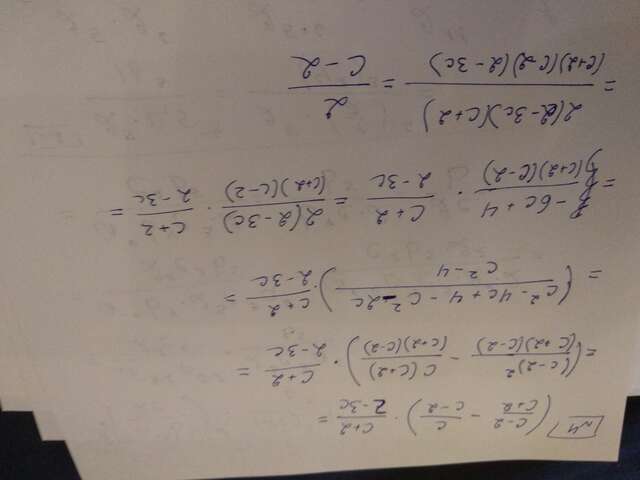 №4 ((c-2)/(c+2) - c/(c-2)) · (c+2)/(2-3c) =
= ((c-2)²/((c+2)(c-2)) - c(c+2)/((c+2)(c-2))) · (c+2)/(2-3c) =
= ((c²-4c+4-c²-2c)/(c²-4)) · (c+2)/(2-3c) =
= (-6c+4)/((c+2)(c-2)) · (c+2)/(2-3c) = 2(2-3c)/((c+2)(c-2)) · (c+2)/(2-3c) =
= 2(2-3c)(c+2)/((c+2)(c-2)(2-3c)) = 2/(c-2)